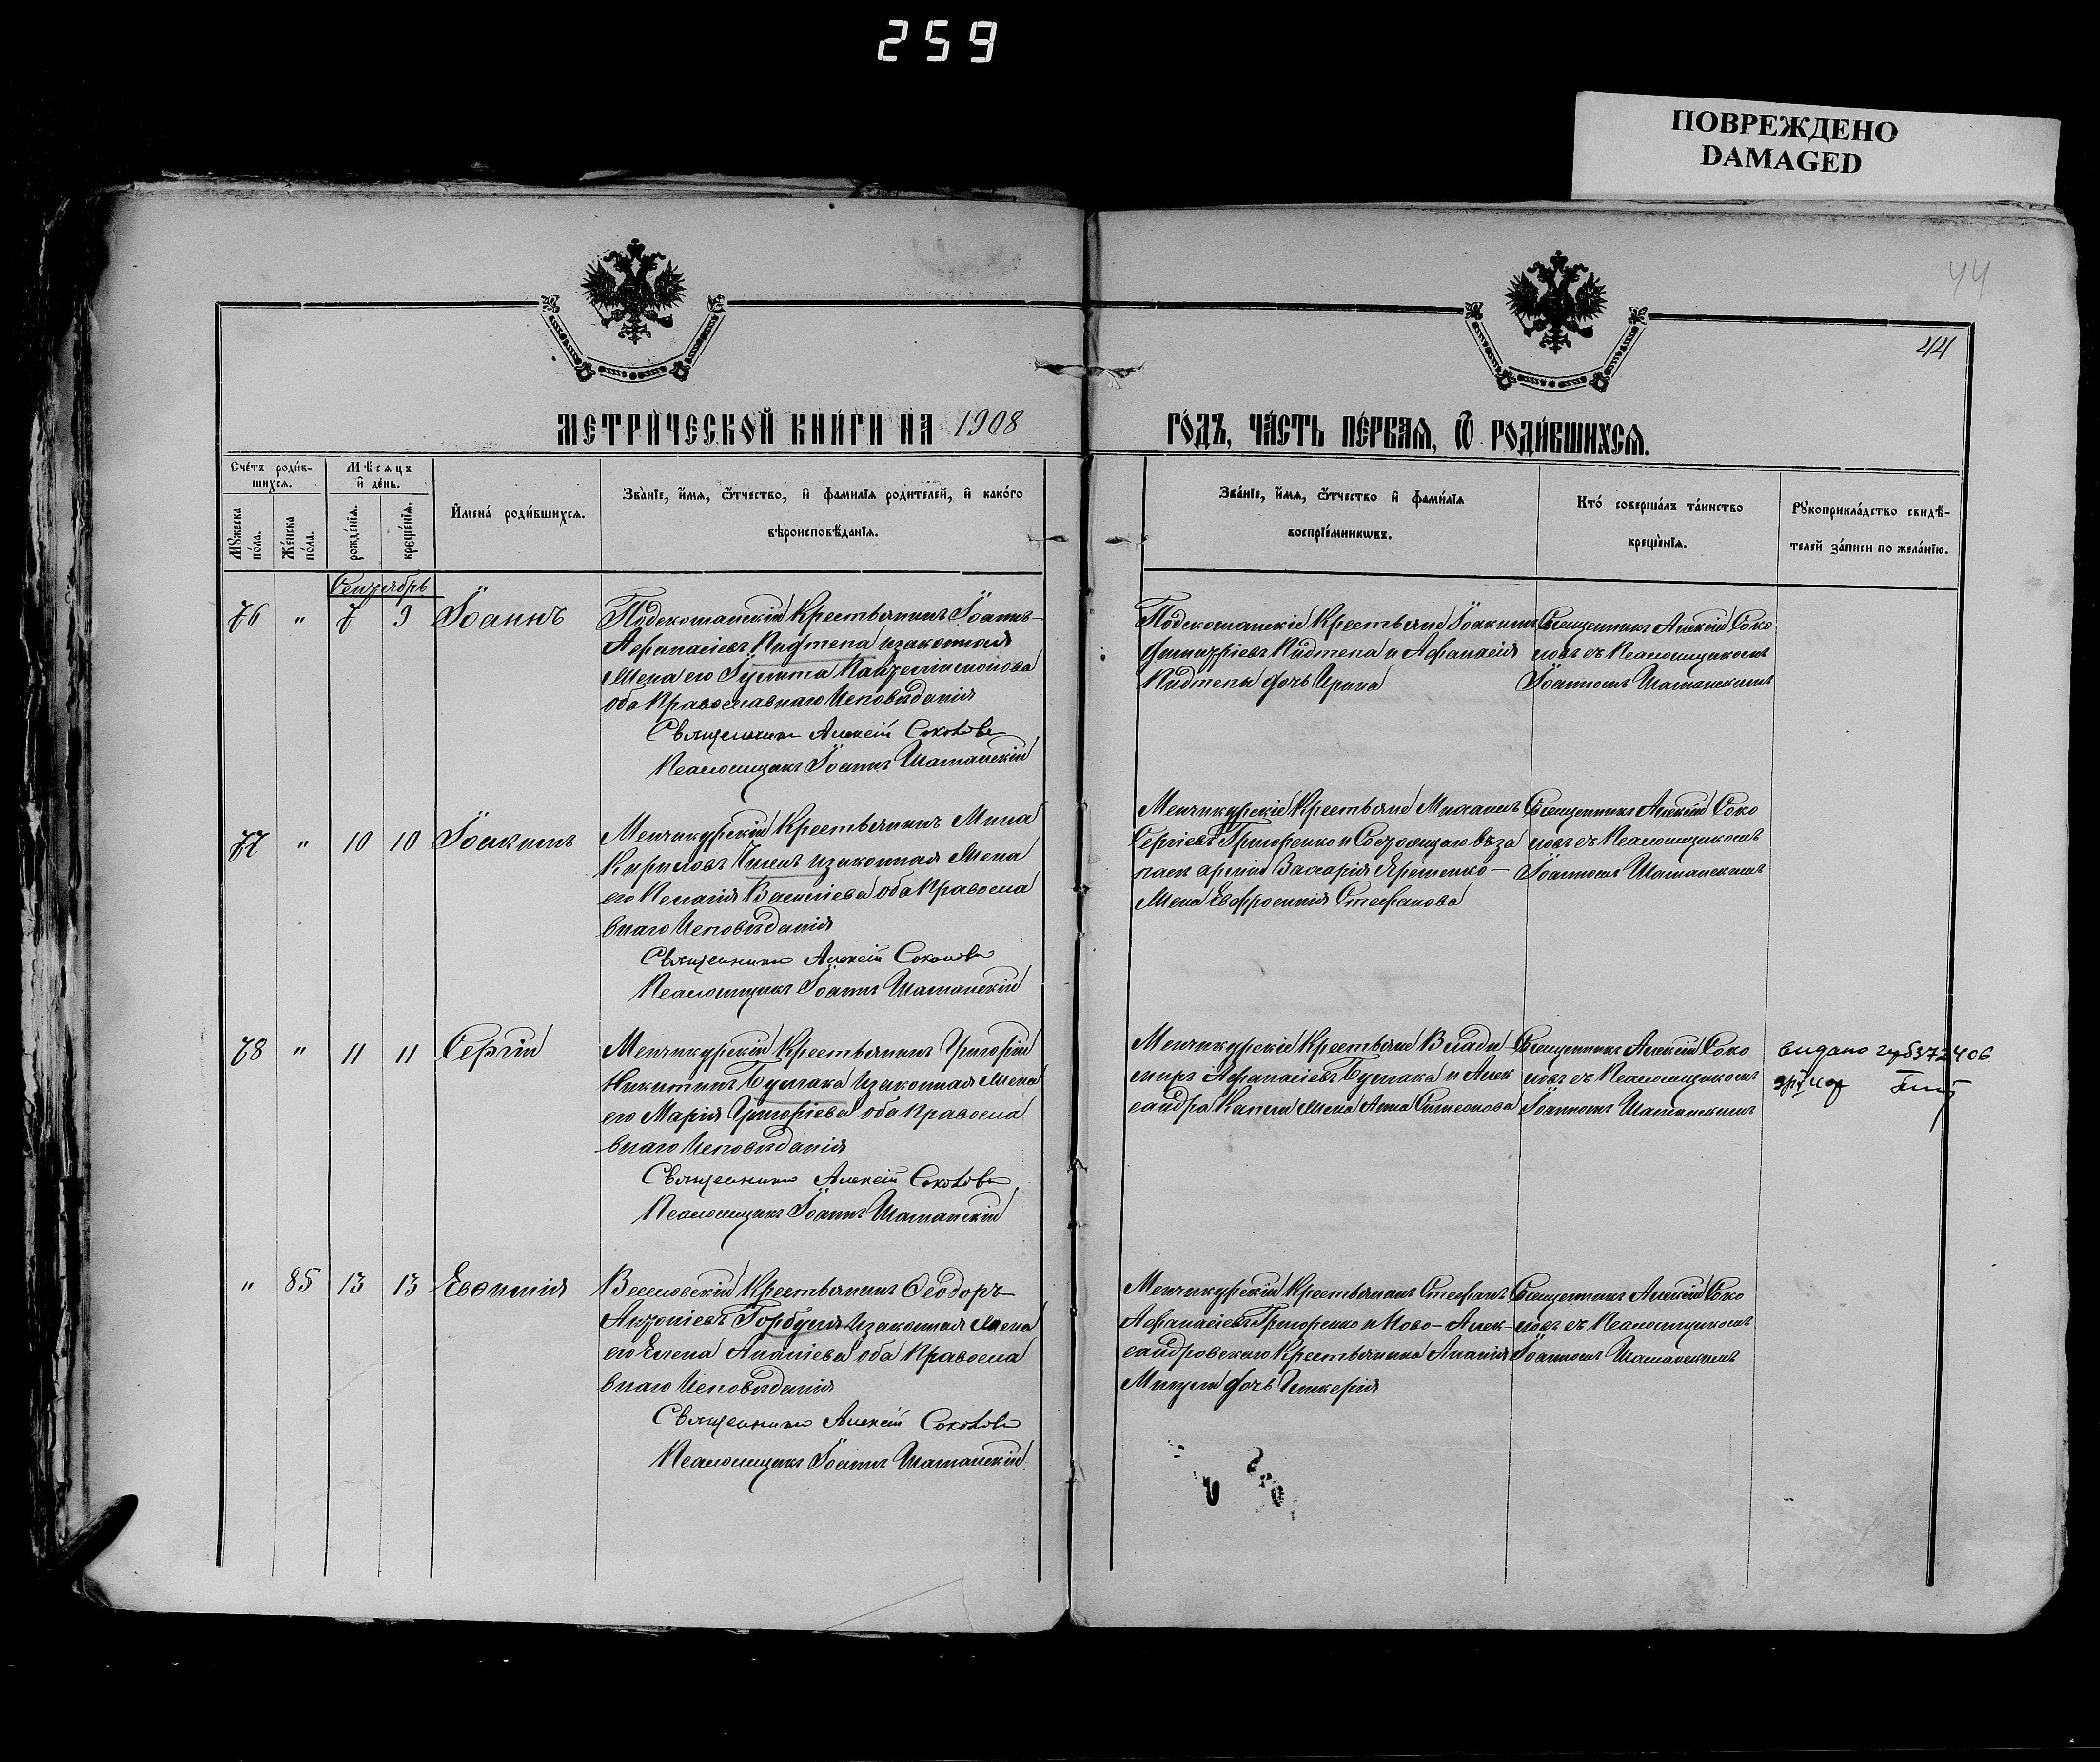 259
ПОВРЕЖДЕНО
DAMAGED
44
44
МЕТРИ́ЧЕСКОЙ КНИ́ГИ НА 1908
ГО́ДЪ, ЧА́СТЬ ПЕ́РВАѦ, Ѿ РОДИ́ВШИХСѦ.
Сче́тъ роди́в-
шихсѧ.
Мѣсѧцъ
и҆ де́нь.
Мꙋжеска
по́ла.
Же́нска
по́ла.
рожде́нїѧ.
креще́нїѧ.
И҆мена̀ роди́вшихсѧ.
Зва́нїе, и҆́мѧ, ѻ҆́тчество, и҆ фамилїѧ родителей, и҆ како́го
вѣроисповѣ́данїѧ.
Зва́нїе, и҆́мѧ, ѻ҆́тчество и҆ фами́лїѧ
воспрїе́мникѡвъ.
Кто́ соверша́лъ та́инство
креще́нїѧ.
Рꙋкоприкла́дство свидѣ́-
телей за́писи по жела́нїю.
Сентябрь
76 " 7 9 Іоаннъ
Подокошанскій Крестьянинъ Іоаннъ
Афанасіевъ Пидтепа и законная
жена его Іулита Пантелеимонова
оба Православнаго Исповѣданія
Священникъ Алексій Соколовъ
Псаломщикъ Іоаннъ Шатанскій
Подокошанскіе Крестьяне Іоакимъ
Димитріевъ Пидтепа и Афанасія
Пидтепы дочь Ирина
Священникъ Алексій Соко
ловъ съ Псаломщикомъ
Іоанномъ Шатанскимъ
77 " 10 10 Іоакимъ
Менчикурскій Крестьянинъ Мина
Кириловъ и законная жена
его Пелагія Васильева оба Правосла
внаго Исповѣданія
Священникъ Алексій Соколовъ
Псаломщикъ Іоаннъ Шатанскій
Менчикурскіе Крестьяне Михаилъ
Сергіевъ Григоренко и Состоящаго въ за
пасѣ арміи Захарія Яременко
жена Евфросинія Стефанова
Священникъ Алексій Соко
ловъ съ Псаломщикомъ
Іоанномъ Шатанскимъ
78 " 11 11 Сергій
Менчикурскій Крестьянинъ Григорій
Никитинъ Бушака и законная жена
его Марія Григоріева оба Правосла
внаго Исповѣданія
Священникъ Алексій Соколовъ
Псаломщикъ Іоаннъ Шатанскій
Менчикурскіе Крестьяне Влади
миръ Афанасіевъ Бушака и Алек
сандра Капли жена Анна Симеонова
Священникъ Алексій Соко
ловъ съ Псаломщикомъ
Іоанномъ Шатанскимъ
видано
" 85 13 13 Евѳимія
Веселовскій Крестьянинъ Ѳеодоръ
Антоніевъ Горбуля и законная жена
его Елена Ананіева оба Правосла
внаго Исповѣданія
Священникъ Алексій Соколовъ
Псаломщикъ Іоаннъ Шатанскій
Менчикурскій Крестьянинъ Стефанъ
Афанасіевъ Григоренко и Ново-Алек
сандровскаго Крестьянина Ананія
дочь Гликерія
Священникъ Алексій Соко
ловъ съ Псаломщикомъ
Іоанномъ Шатанскимъ